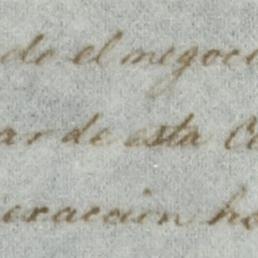 do el negoci
ar de esta C
exaccion he